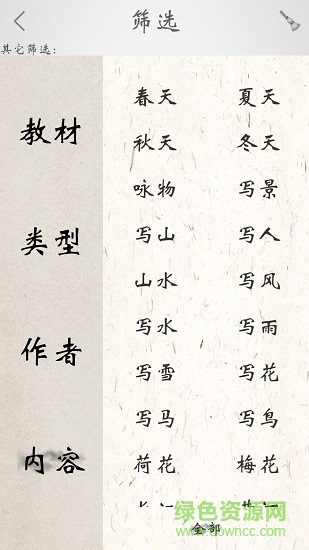 筛选
其它筛选：
教材
类型
作者
内容
春天 夏天
秋天 冬天
咏物 写景
写山 写人
山水 写风
写水 写雨
写雪 写花
写马 写鸟
荷花 梅花
全部
绿色资源网
www.downcc.com